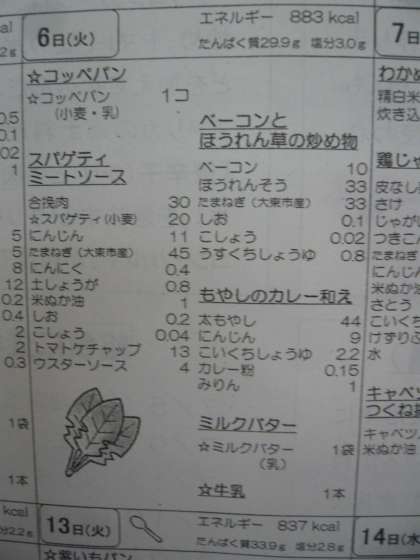 kcal
2g
6日(火)
エネルギー 883 kcal
たんぱく質29.9g 塩分3.0g
7日
☆コッペパン
☆コッペパン 1コ
(小麦・乳)
スパゲティ
ミートソース
合挽肉 30
☆スパゲティ(小麦) 20
にんじん 11
たまねぎ(大東市産) 45
にんにく 0.4
土しょうが 0.8
米ぬか油 1
しお 0.2
こしょう 0.04
トマトケチャップ 13
ウスターソース 4
ベーコンと
ほうれん草の炒め物
ベーコン 10
ほうれんそう 33
たまねぎ(大東市産) 33
しお 0.1
こしょう 0.02
うすくちしょうゆ 0.8
もやしのカレー和え
太もやし 44
にんじん 9
こいくちしょうゆ 2.2
カレー粉 0.15
みりん 1
ミルクバター
☆ミルクバター 1袋
(乳)
☆牛乳 1本
0.5
0.1
02
1
5
5
8
12
0.2
0.4
2
2
0.3
1袋
1本
わかめ
精白米
炊き込
鶏じゃ
皮なし
さけ
じゃが
つきこん
たまねぎ
にんじん
米ぬか油
さとう
こいくち
けずりぶ
水
キャベツ
つくね
キャベツ
米ぬか油
kcal
分2.2g
13日(火)
エネルギー 837 kcal
たんぱく質33.9g 塩分2.8g
14日(水
☆紫いもパン